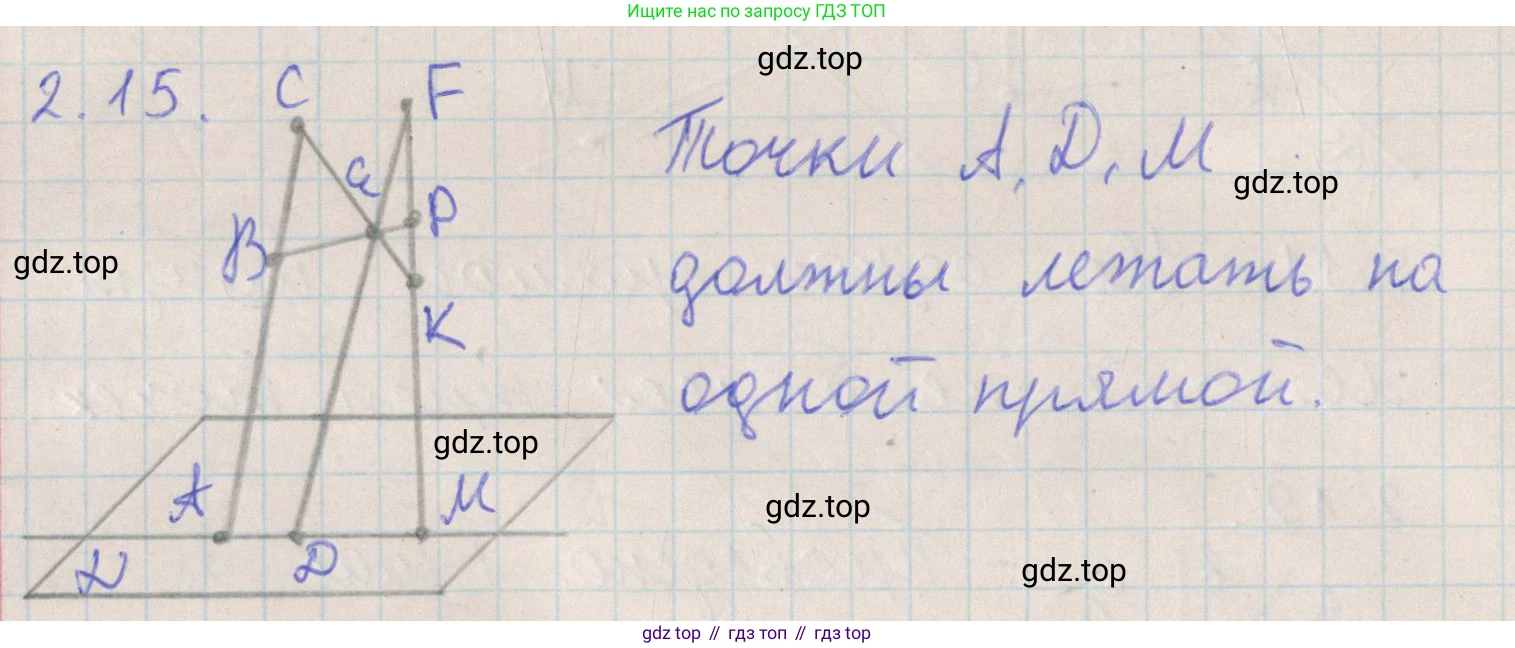 Ищите нас по запросу ГДЗ ТОП
gdz.top
2.15.
C
F
Точки A, D, M
gdz.top
G
P
B
gdz.top
должны лежать на
K
одной прямой.
gdz.top
A
M
gdz.top
D
α
gdz.top
gdz top // гдз топ // гдз top